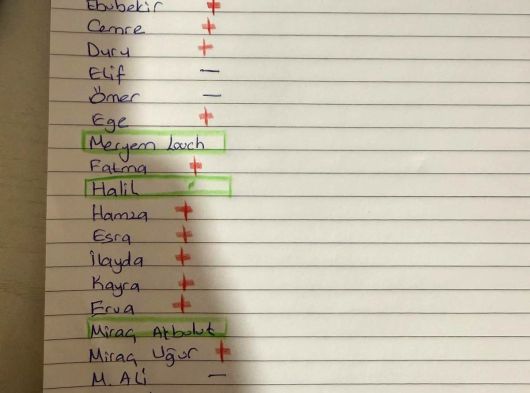 Ebubekir +
Cemre +
Duru +
Elif —
Ömer —
Ege +
Meryem Louch
Fatma +
Halil
Hamza +
Esra +
İlayda +
Kayra +
Erva +
Miraç Akbulut
Miraç Uğur +
M. Ali —